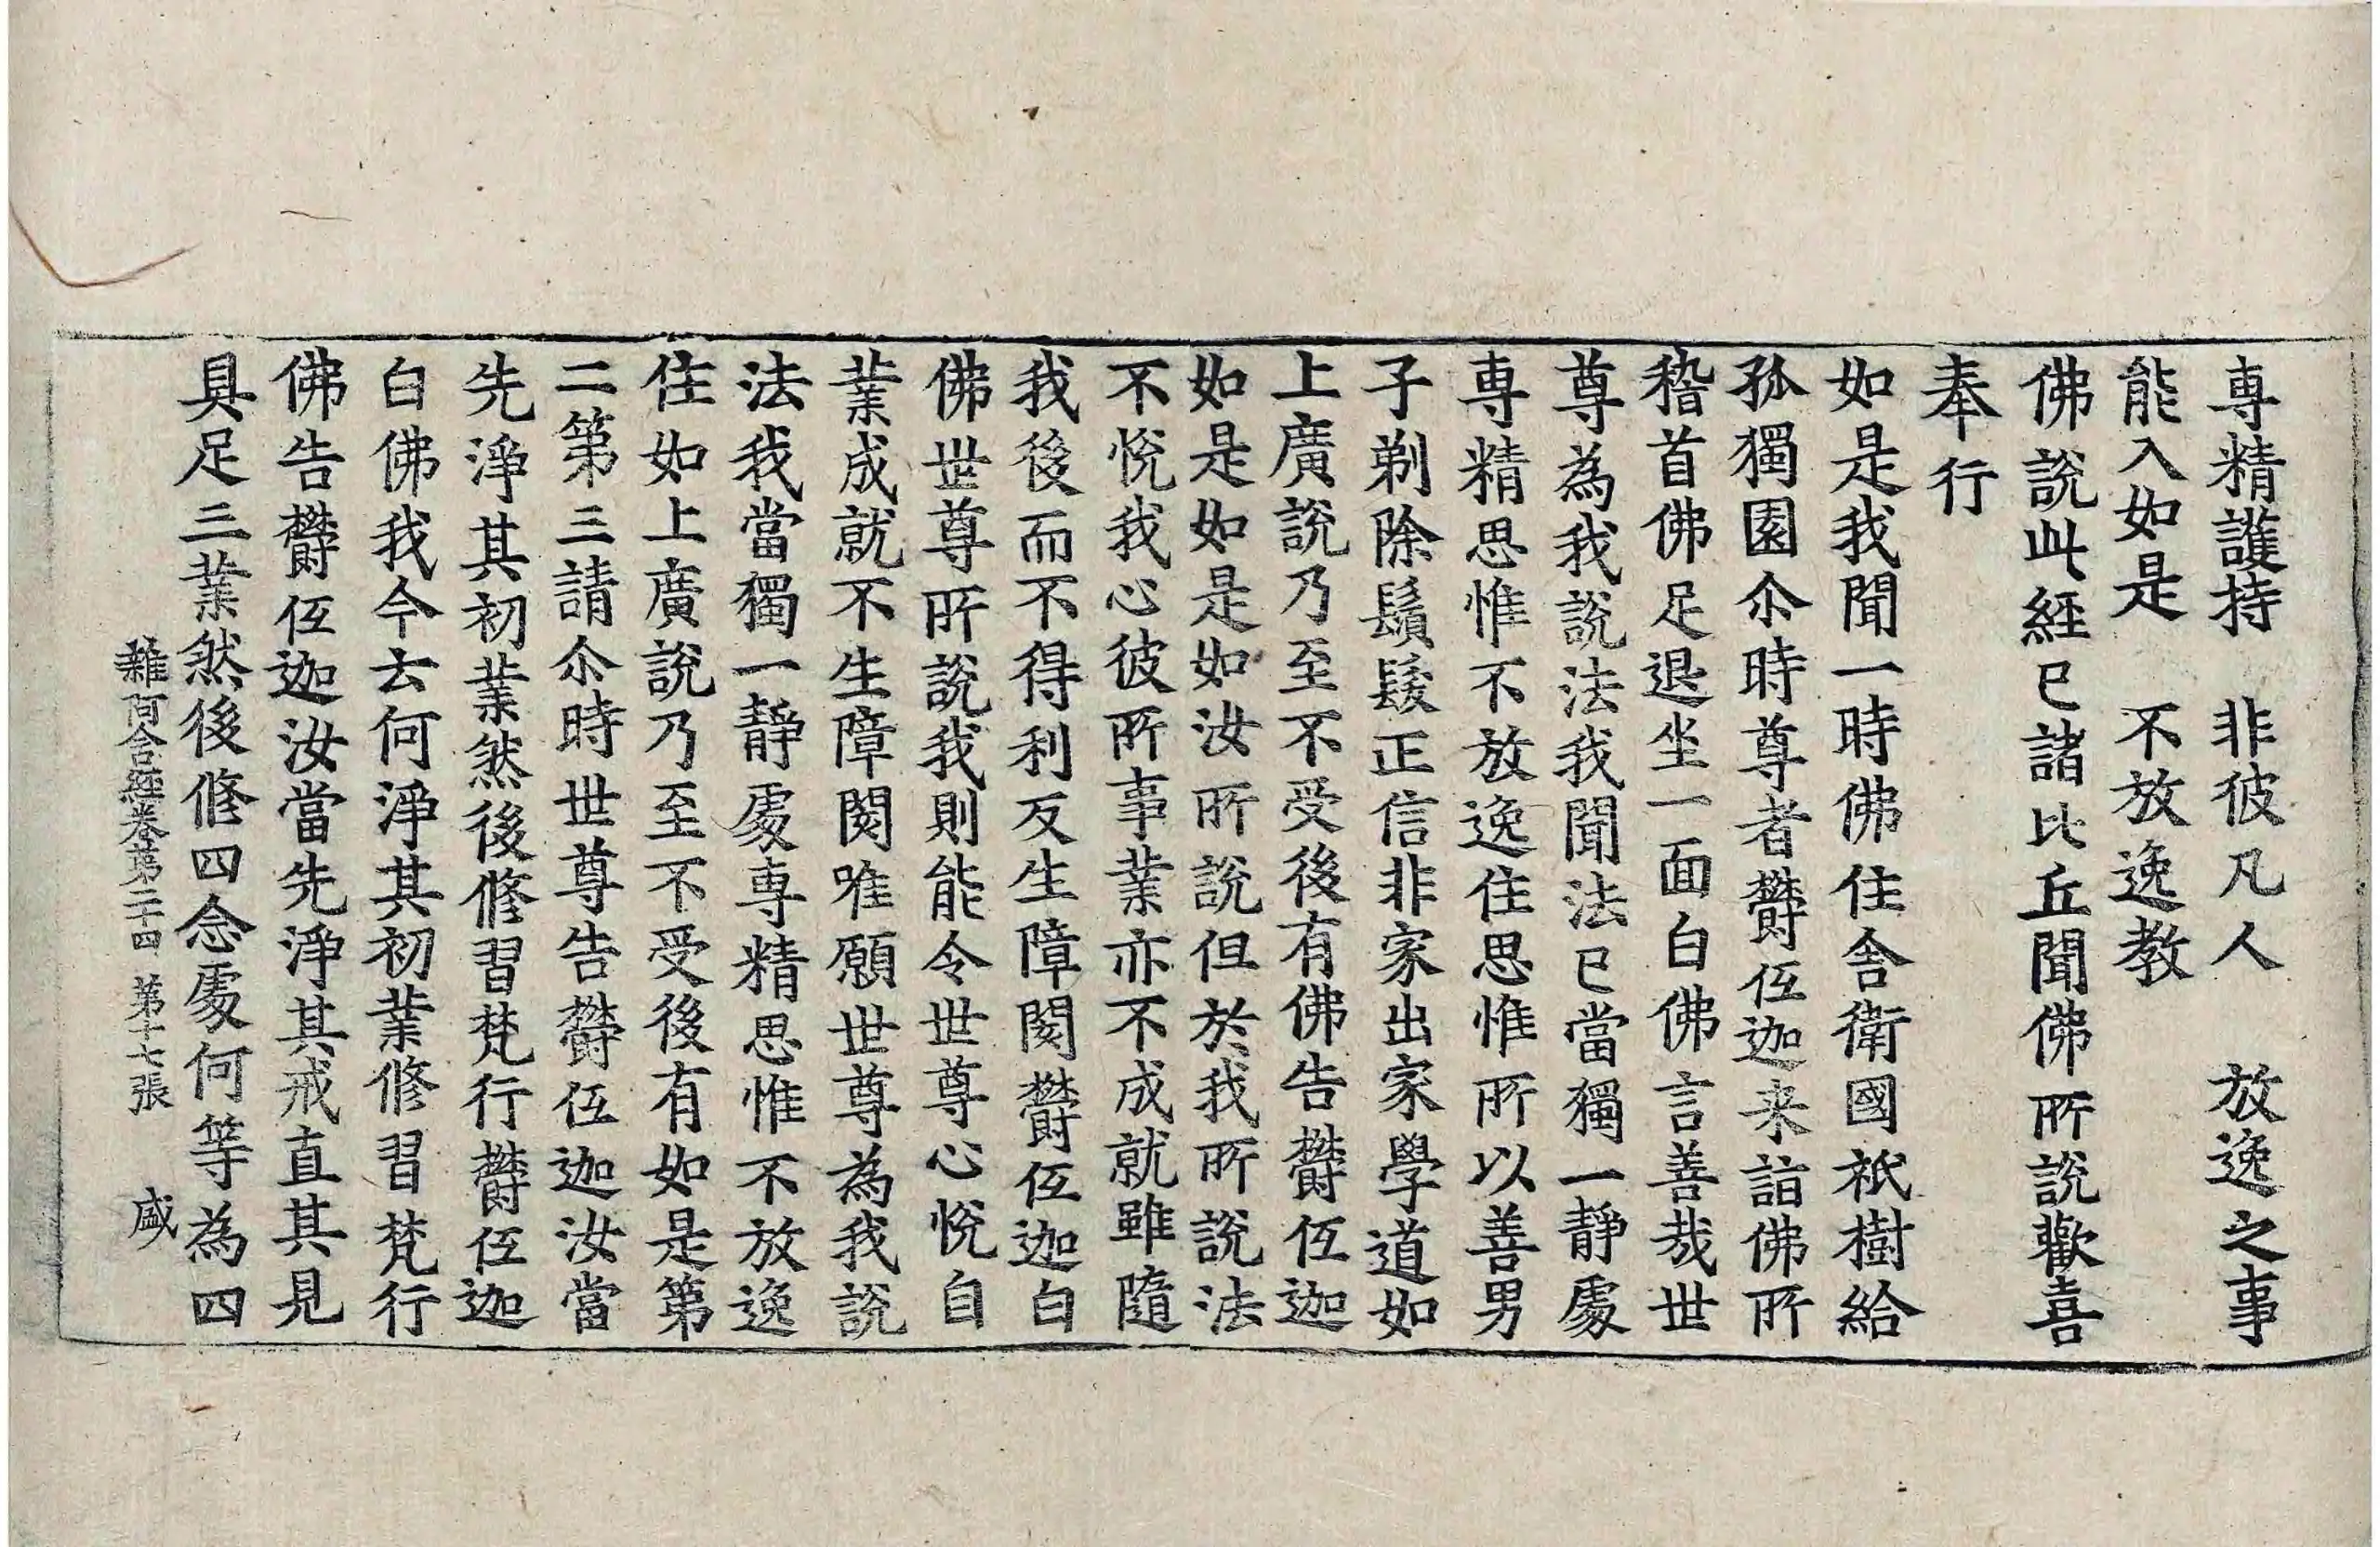 専精護持　非彼凡人　放逸之事
能入如是　不放逸教
佛說此経已諸比丘聞佛所說歡喜
奉行
如是我聞一時佛住舍衛國祇樹給
孤獨園尒時尊者欝仾迦来詣佛所
稽首佛足退坐一面白佛言善哉世
尊為我說法我聞法已當獨一靜處
専精思惟不放逸住思惟所以善男
子剃除鬚髮正信非家出家學道如
上廣說乃至不受後有佛告欝仾迦
如是如是如汝所說但於我所說法
不悅我心彼所事業亦不成就雖隨
我後而不得利反生障閡欝仾迦白
佛世尊所說我則能令世尊心悅自
業成就不生障閡唯願世尊為我說
法我當獨一靜處専精思惟不放逸
住如上廣說乃至不受後有如是第
二第三請尒時世尊告欝仾迦汝當
先淨其初業然後修習梵行欝仾迦
白佛我今云何淨其初業修習梵行
佛告欝仾迦汝當先淨其戒直其見
具足三業然後修四念處何等為四
雜阿含経卷第二十四　第十七張　盛